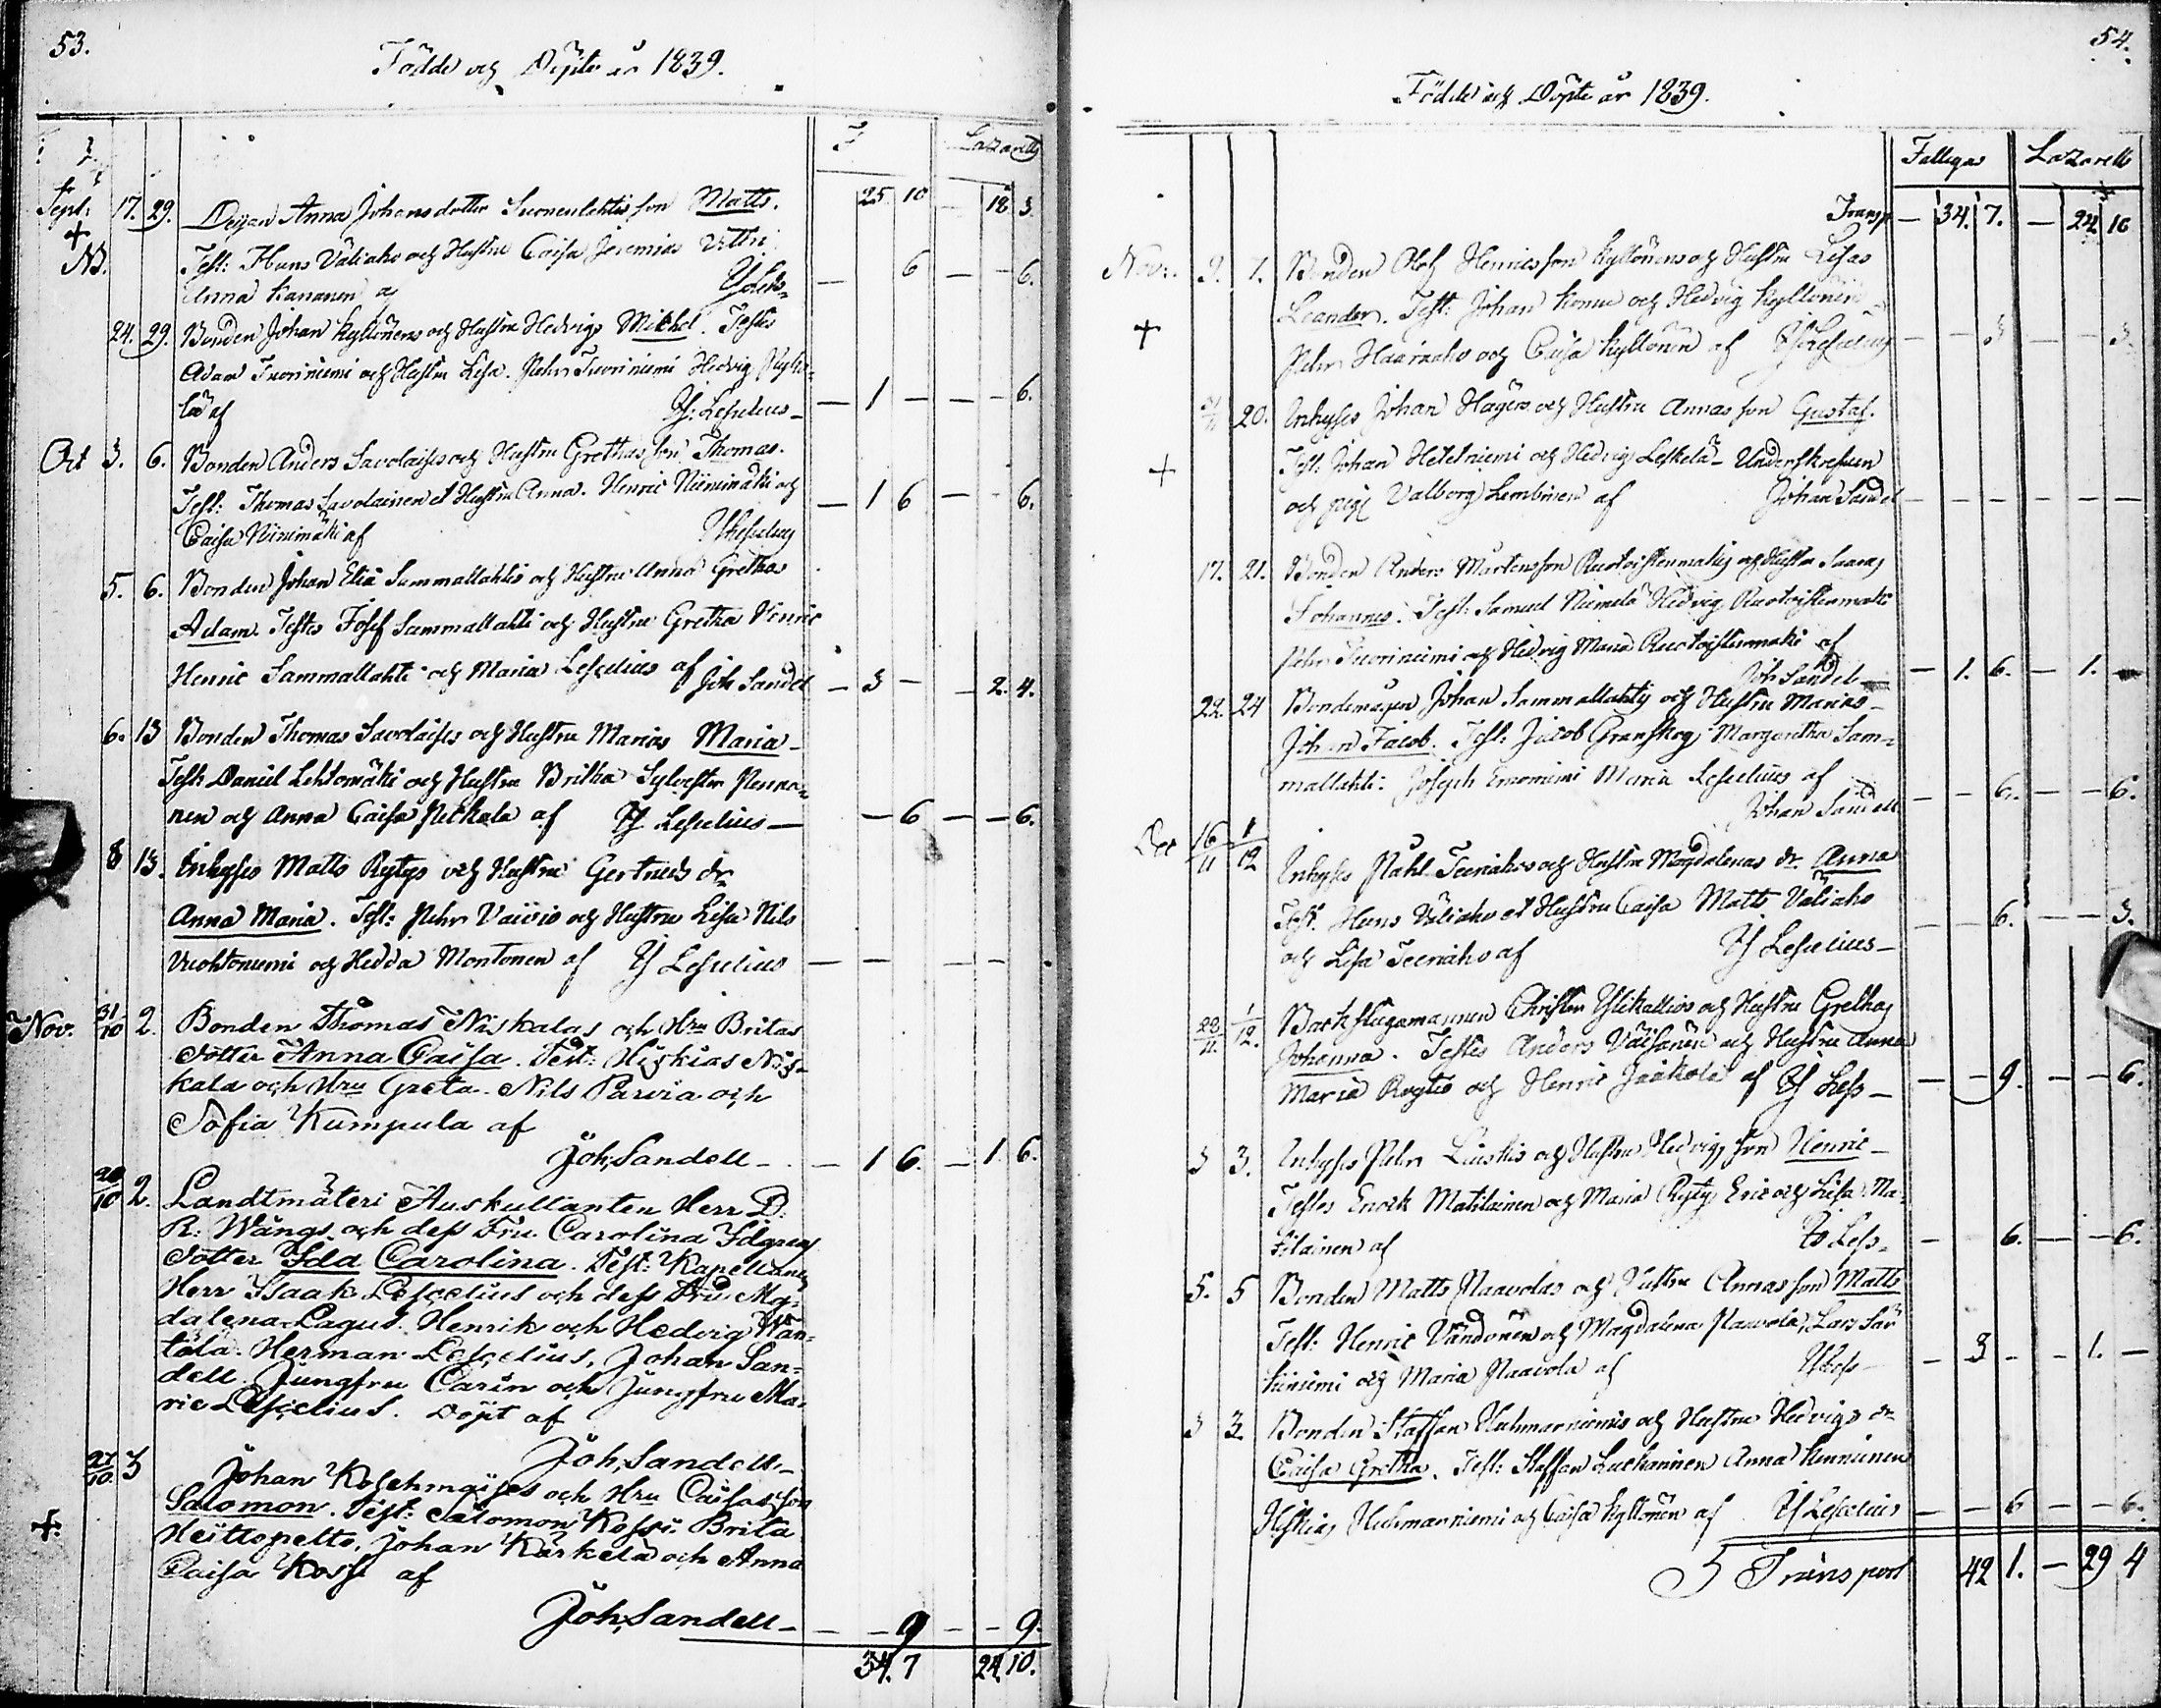 53.
Födde och Döpte år 1839.
Lazarett
25 10 18 3.
Sept: 17. 29. Anna Johansdotter son Matts.
Test: Hans Väliaho och Hustru Caisa Jeremias
Anna Kananen af 6 6.
24. 29. Bonden Johan Kyllönens och Hustru Hedvigs Michel. Testes
Adam Tuoriniemi och Hustru Lisa. Pehr Tuoriniemi Hedvig
af Is: Lescelius 1 6.
Oct 3. 6. Bonden Anders Savolaises och Hustru Grethas son Thomas.
Test: Thomas Savolainen et Hustru Anna. Henric Niinimäki och 1 6 6.
Caisa Niinimäki af Is Lescelius
5. 6. Bonden Johan Eliæ Sammallahtis och Hustru Anna Grethas
Adam. Testes Josef Sammallahti och Hustru Gretha
Henric Sammallahti och Maria Lescelius af Joh Sandel 3 2. 4.
6. 13 Bonden Thomas Savolaises och Hustru Marias Maria
Test: Daniel Lehtomäki och Hustru Britha Sylvester Penna-
nen och Anna Caisa Pekkala af Is Lescelius 6 6.
8 13. Inhyses Matts Rytys och Hustru Gertruds dr
Anna Maria. Test: Pehr Vaivio och Hustru Lisa Nils
Vuohtoniemi och Hedda Montonen af Is Lescelius
Nov. 31/10 2. Bonden Thomas Niskalas och Hru Britas
dotter Anna Caisa. Test: Hiskias Nis-
kala och Hru Greta. Nils Parvia och
Sofia Kumpula af
Joh. Sandell 1 6. 1. 6.
20/10 2. Landtmäteri Auskultanten Herr D.
R: Wångs och dess Fru Carolina Idgrens
dotter Ida Carolina. Test: Kapellanen
Herr Isaak Lescelius och dess Fru Mag-
dalena Lagus. Henrik och Hedvig Wän-
tölä. Herman Lescelius, Johan San-
dell. Jungfru Carin och Jungfru Ma-
rie Lescelius. Döpt af
Joh. Sandell
27/10 3 Johan Kolehmaises och Hru Caisas son
Salomon. Test: Salomon Kossi Brita
Heittopelto, Johan Karkela och Anna
Caisa Kossi af
Joh. Sandell 9 9.
34. 7 24. 10.
54.
Födde och Döpte år 1839.
Fattiga Lazarett
Transp 34. 7. 24. 10
Nov: 2. 7. Bonden Olof Henricsson Kyllönens och Hustru Lisas
Leander. Test: Johan Komu och Hedvig Kyllönen
Pehr Haaraaho och Caisa Kyllönen af Is Lescelius 3 3.
20. Inhyses Johan Hägers och Hustru Annas son Gustaf.
Test: Johan Heteniemi och Hedvig Leskelä Underskrefven
och pig: Valborg Lembinen af Johan Sandel
17. 21. Bonden Anders Mårtensson Ruotoistenmäkis och Hustru Saaras
Johannes. Test: Samuel Niemelä Hedvig Ruotoistenmäki
Pehr Tuoriniemi och Hedvig Maria Ruotoistenmäki af
Joh Sandel 1. 6. 1.
22. 24 Bondemågen Johan Sammallahtis och Hustru Marias
Johan Jacob. Test: Jacob Granskog Margaretha Sam-
mallahti. Joseph Emoniemi Maria Lescelius af
Johan Sandell 6. 6.
Dec 16/11 1/12 Inhyses Påhl Teeriahos och Hustru Magdalenas dr. Anna
Test. Hans Väliaho et Hustru Caisa Matts Väliaho 6. 3.
och Lisa Teeriaho af Is Lescelius
28/11. 1/12. Backstugomannen Christer Ylikallios och Hustru Grethas
Johanna. Testes Anders Väisänen och Hustru Anna
Maria Rytis och Henric Jaakola af Is Less 9. 6.
3 3. Inhyses Pehr Liuskis och Hustru Hedvigs son Henric
Testes Enock Matilainen och Maria Ryty Eric och Lisa Ma-
tilainen af Is Less. 6. 6.
5. 5 Bonden Matts Paavolas och Hustru Annas son Matts
Test: Henric Vändönen och Magdalena Paavola, Lars Sär
kiniemi och Maria Paavola af Is Less 3 1.
3 3. Bonden Staffan Huhmarniemis och Hustru Hedvigs dr
Caisa Gretha. Test: Staffan Luckininen Anna Kinnunen
Hiskias Huhmarniemi och Caisa Kyllönen af Is Lescelius 6 6.
Transport 42 1. 29 4